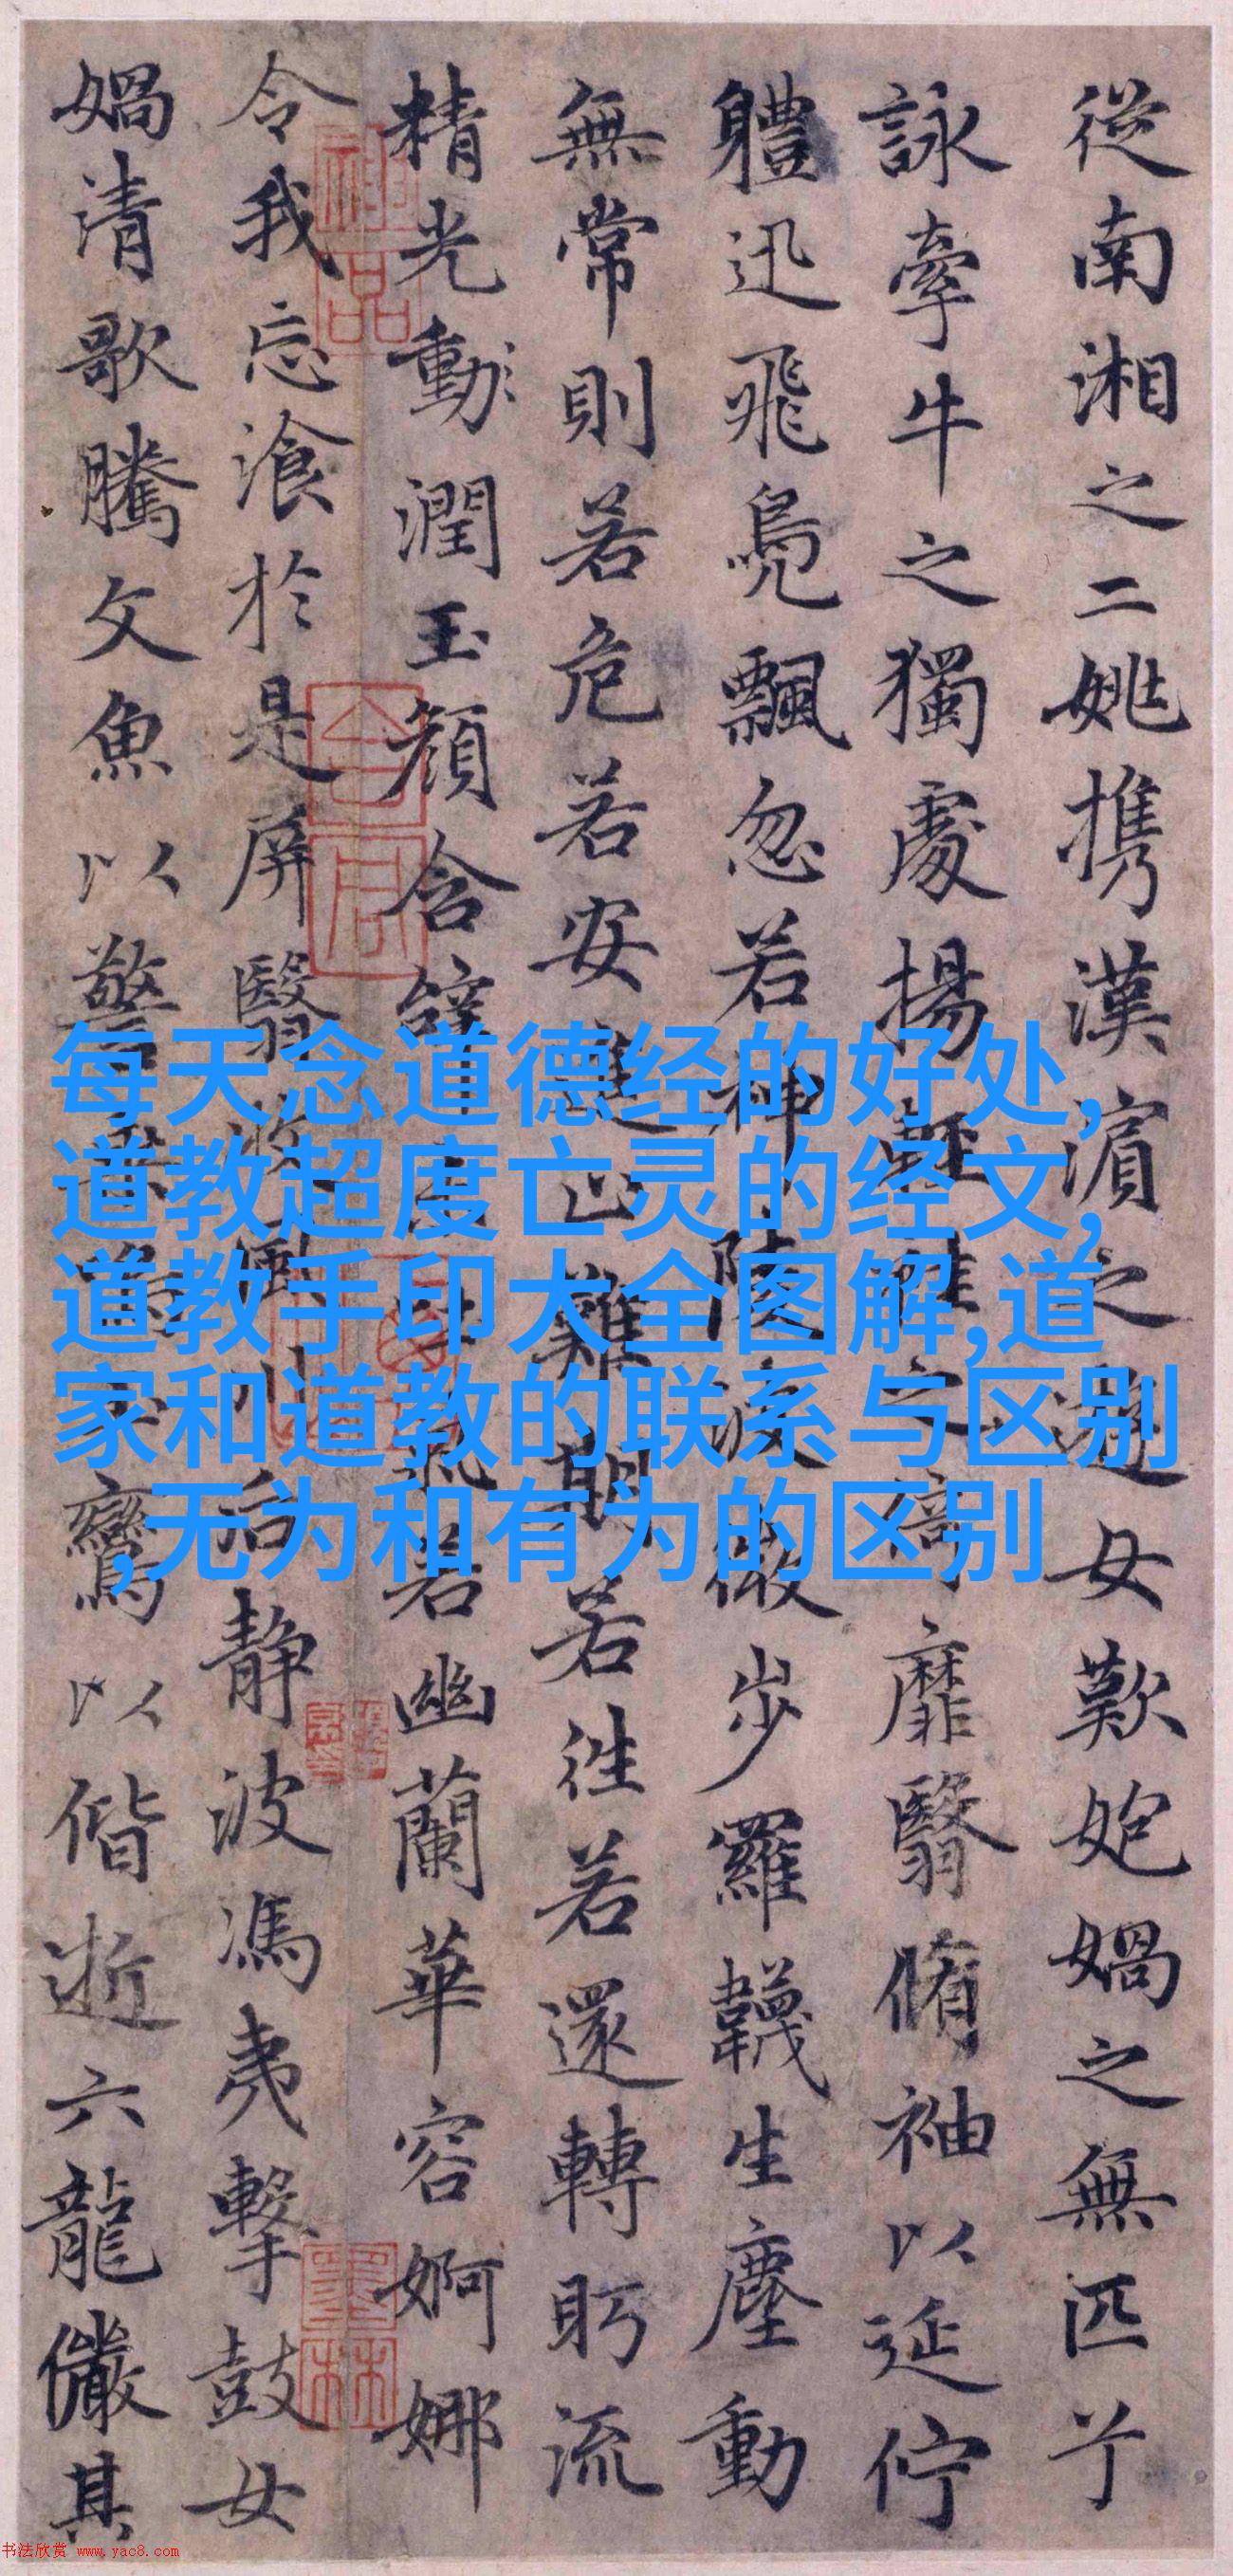 從南湘之二姚携漢濱之遊女歎匏媧之無匹兮
詠牽牛之獨處揚輕袿之猗靡翳脩袖以延佇
體迅飛鳧飄忽若神陵波微步羅韈生塵動
無常則若危若安進止難期若往若還轉眄流
精光動潤玉顏含辭未吐氣若幽蘭華容婀娜
令我忘湌於是屏翳收風川后靜波馮夷擊鼓女
媧清歌騰文魚以警乘鳴玉鸞以偕逝六龍儼其
神品
墨林
每天念道德经的好处,
道教超度亡灵的经文,
道教手印大全图解,道
家和道教的联系与区别
,无为和有为的区别
书法欣赏 www.yac8.com